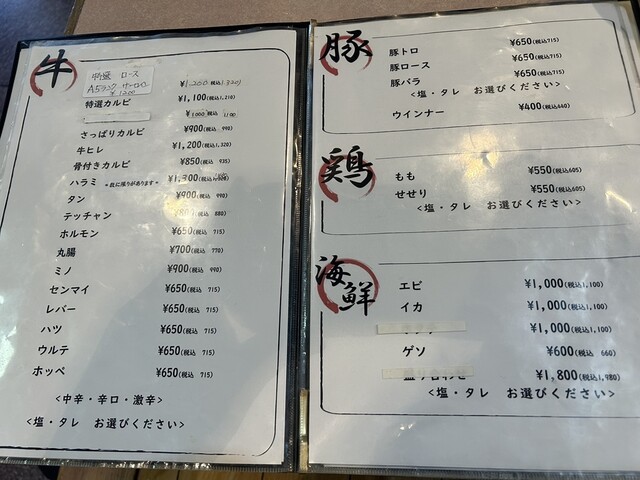 牛
特選 ロース ¥1,200(税込1,320)
A5ランク サーロイン
¥1200
特選カルビ ¥1,100(税込1,210)
¥1000(税込 1100
さっぱりカルビ ¥900(税込 990)
牛ヒレ ¥1,200(税込1,320)
骨付きカルビ ¥850(税込 935)
ハラミ ＊数に限りがあります＊ ¥1,300
タン ¥900(税込 990)
テッチャン ¥800(税込 880)
ホルモン ¥650(税込 715)
丸腸 ¥700(税込 770)
ミノ ¥900(税込 990)
センマイ ¥650(税込 715)
レバー ¥650(税込 715)
ハツ ¥650(税込 715)
ウルテ ¥650(税込 715)
ホッペ ¥650(税込 715)
<中辛・辛口・激辛>
<塩・タレ お選びください>
豚
豚トロ ¥650(税込715)
豚ロース ¥650(税込715)
豚バラ ¥650(税込715)
<塩・タレ お選びください>
ウインナー ¥400(税込440)
鶏
もも ¥550(税込605)
せせり ¥550(税込605)
<塩・タレ お選びください>
海鮮
エビ ¥1,000(税込1,100)
イカ ¥1,000(税込1,100)
¥1,000(税込1,100)
ゲソ ¥600(税込 660)
盛り合わせ ¥1,800(税込1,980)
<塩・タレ お選びください>